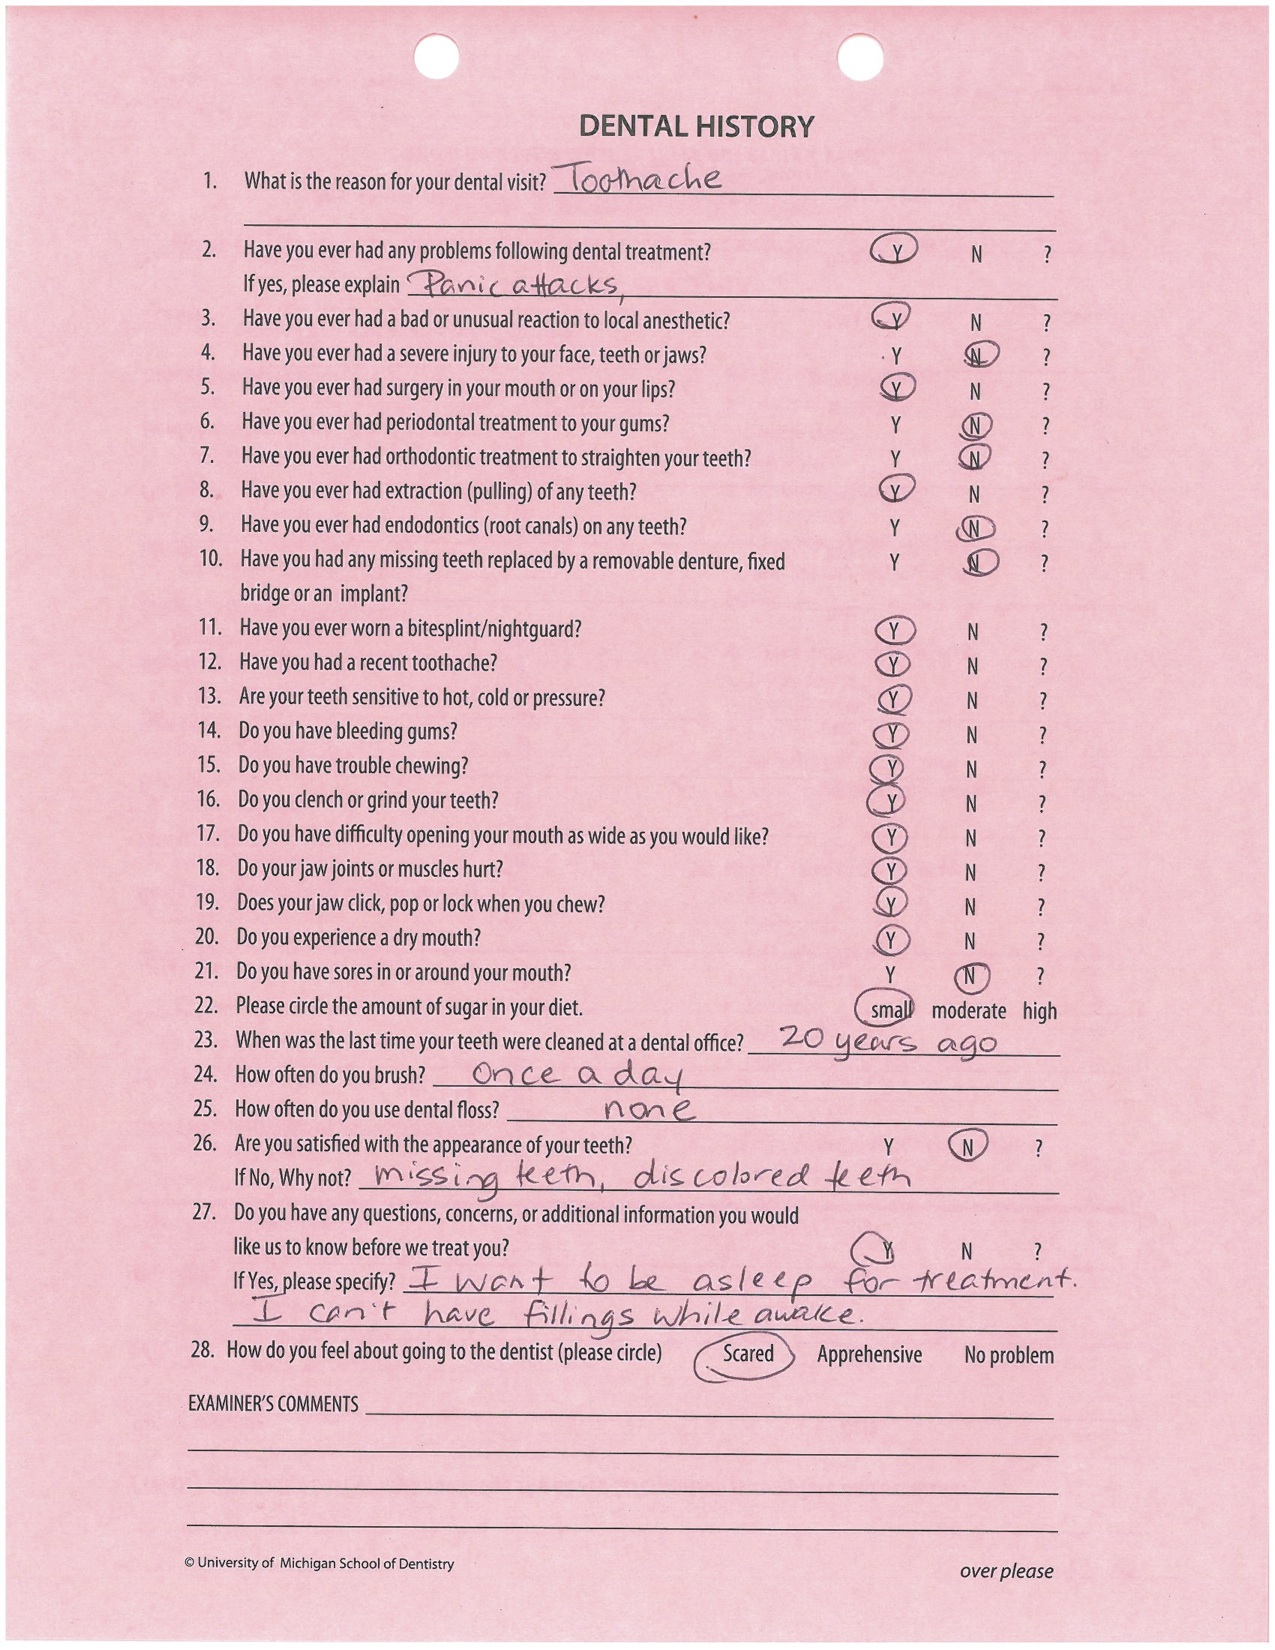 DENTAL HISTORY
1. What is the reason for your dental visit? Toothache
2. Have you ever had any problems following dental treatment? Y N ?
If yes, please explain Panic attacks,
3. Have you ever had a bad or unusual reaction to local anesthetic? Y N ?
4. Have you ever had a severe injury to your face, teeth or jaws? Y N ?
5. Have you ever had surgery in your mouth or on your lips? Y N ?
6. Have you ever had periodontal treatment to your gums? Y N ?
7. Have you ever had orthodontic treatment to straighten your teeth? Y N ?
8. Have you ever had extraction (pulling) of any teeth? Y N ?
9. Have you ever had endodontics (root canals) on any teeth? Y N ?
10. Have you had any missing teeth replaced by a removable denture, fixed Y N ?
bridge or an implant?
11. Have you ever worn a bitesplint/nightguard? Y N ?
12. Have you had a recent toothache? Y N ?
13. Are your teeth sensitive to hot, cold or pressure? Y N ?
14. Do you have bleeding gums? Y N ?
15. Do you have trouble chewing? Y N ?
16. Do you clench or grind your teeth? Y N ?
17. Do you have difficulty opening your mouth as wide as you would like? Y N ?
18. Do your jaw joints or muscles hurt? Y N ?
19. Does your jaw click, pop or lock when you chew? Y N ?
20. Do you experience a dry mouth? Y N ?
21. Do you have sores in or around your mouth? Y N ?
22. Please circle the amount of sugar in your diet. small moderate high
23. When was the last time your teeth were cleaned at a dental office? 20 years ago
24. How often do you brush? once a day
25. How often do you use dental floss? none
26. Are you satisfied with the appearance of your teeth? Y N ?
If No, Why not? missing teeth, discolored teeth
27. Do you have any questions, concerns, or additional information you would
like us to know before we treat you? Y N ?
If Yes, please specify? I want to be asleep for treatment.
I can't have fillings while awake.
28. How do you feel about going to the dentist (please circle) Scared Apprehensive No problem
EXAMINER'S COMMENTS
© University of Michigan School of Dentistry
over please